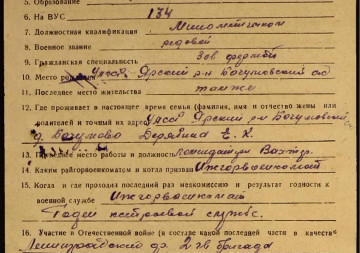 5. Образование
6. На ВУС 134
7. Должностная квалификация Минометчиком
8. Военное звание рядовой
9. Гражданская специальность Зав. фермой
10. Место рождения УАССР Ярский р-н Богушовский с/с
11. Последнее место жительства там же
12. Где проживает в настоящее время семья (фамилия, имя и отчество жены или
родителей и точный адрес) УАССР Ярский р-н
д.
13. Последнее место работы и должность Вахтер
14. Каким райгорвоенкоматом и когда призван Ижгорвоенкомат
15. Когда и где проходил последний раз медкомиссию и результат годности к
военной службе Ижгорвоенкомат
Годен нестроевой службе.
16. Участие в Отечественной войне (в составе какой последней части, в качестве
Ленинградский фр. 2 гв бригада